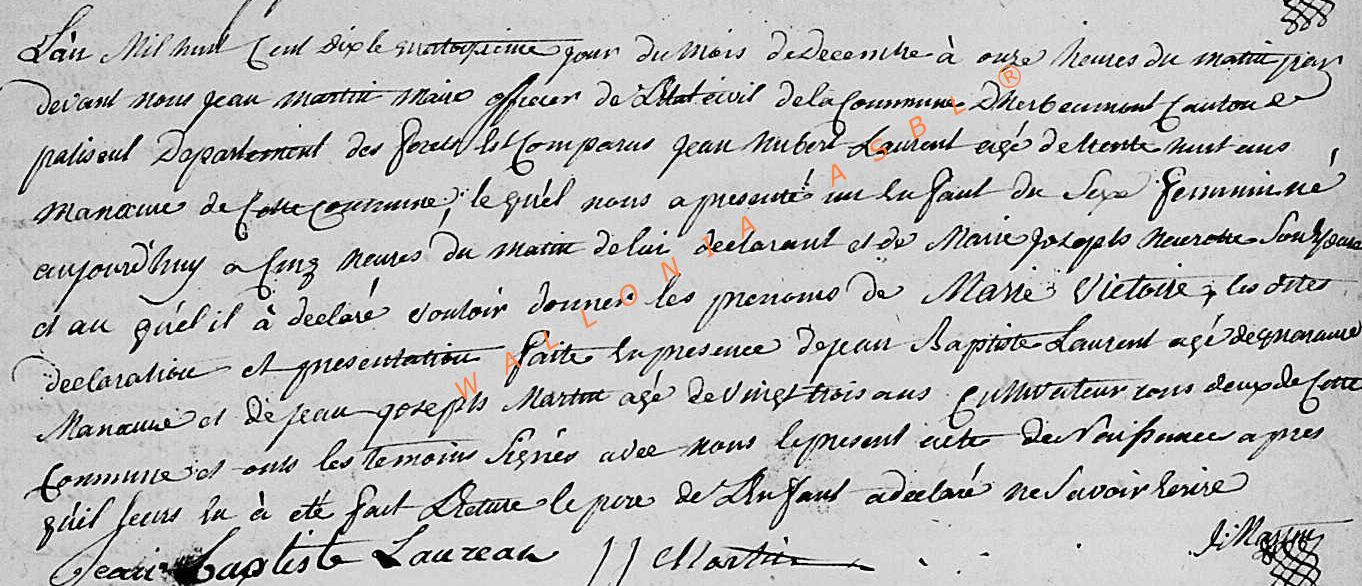 L'an Mil huit Cent dix le quatorzieme jour du Mois de Decembre à onze heures du matin par
devant nous jean martin Maire officier de L'Etat civil de la Commune D'herbeumont Canton de
paliseul Departement des forets Est Comparus jean hubert Laurent agé de trente huit ans
manœuvre de Cette Commune, le quel nous a presenté un Enfant du Sexe feminin né
aujourd'huy a Cinq heures du matin de lui declarant et de Marie josephs Son Epouse
et au quel il à declaré vouloir donner les prenoms de Marie Victoire, les dites
declaration et presentation faite En presence de jean Baptiste Laurent agé de quarante
Manœuvre et de jean josephs Martin agé de vingt trois ans Cultivateur tous deux de Cette
Commune et onts les temoins Signés avec nous le present acte de Naissance apres
quil leurs En à été fait Lecture le pere de L'Enfant a declaré ne Savoir Ecrire
Jean Baptiste Laurean JJ Martin J: Martin
WALLONIA ASBL ®